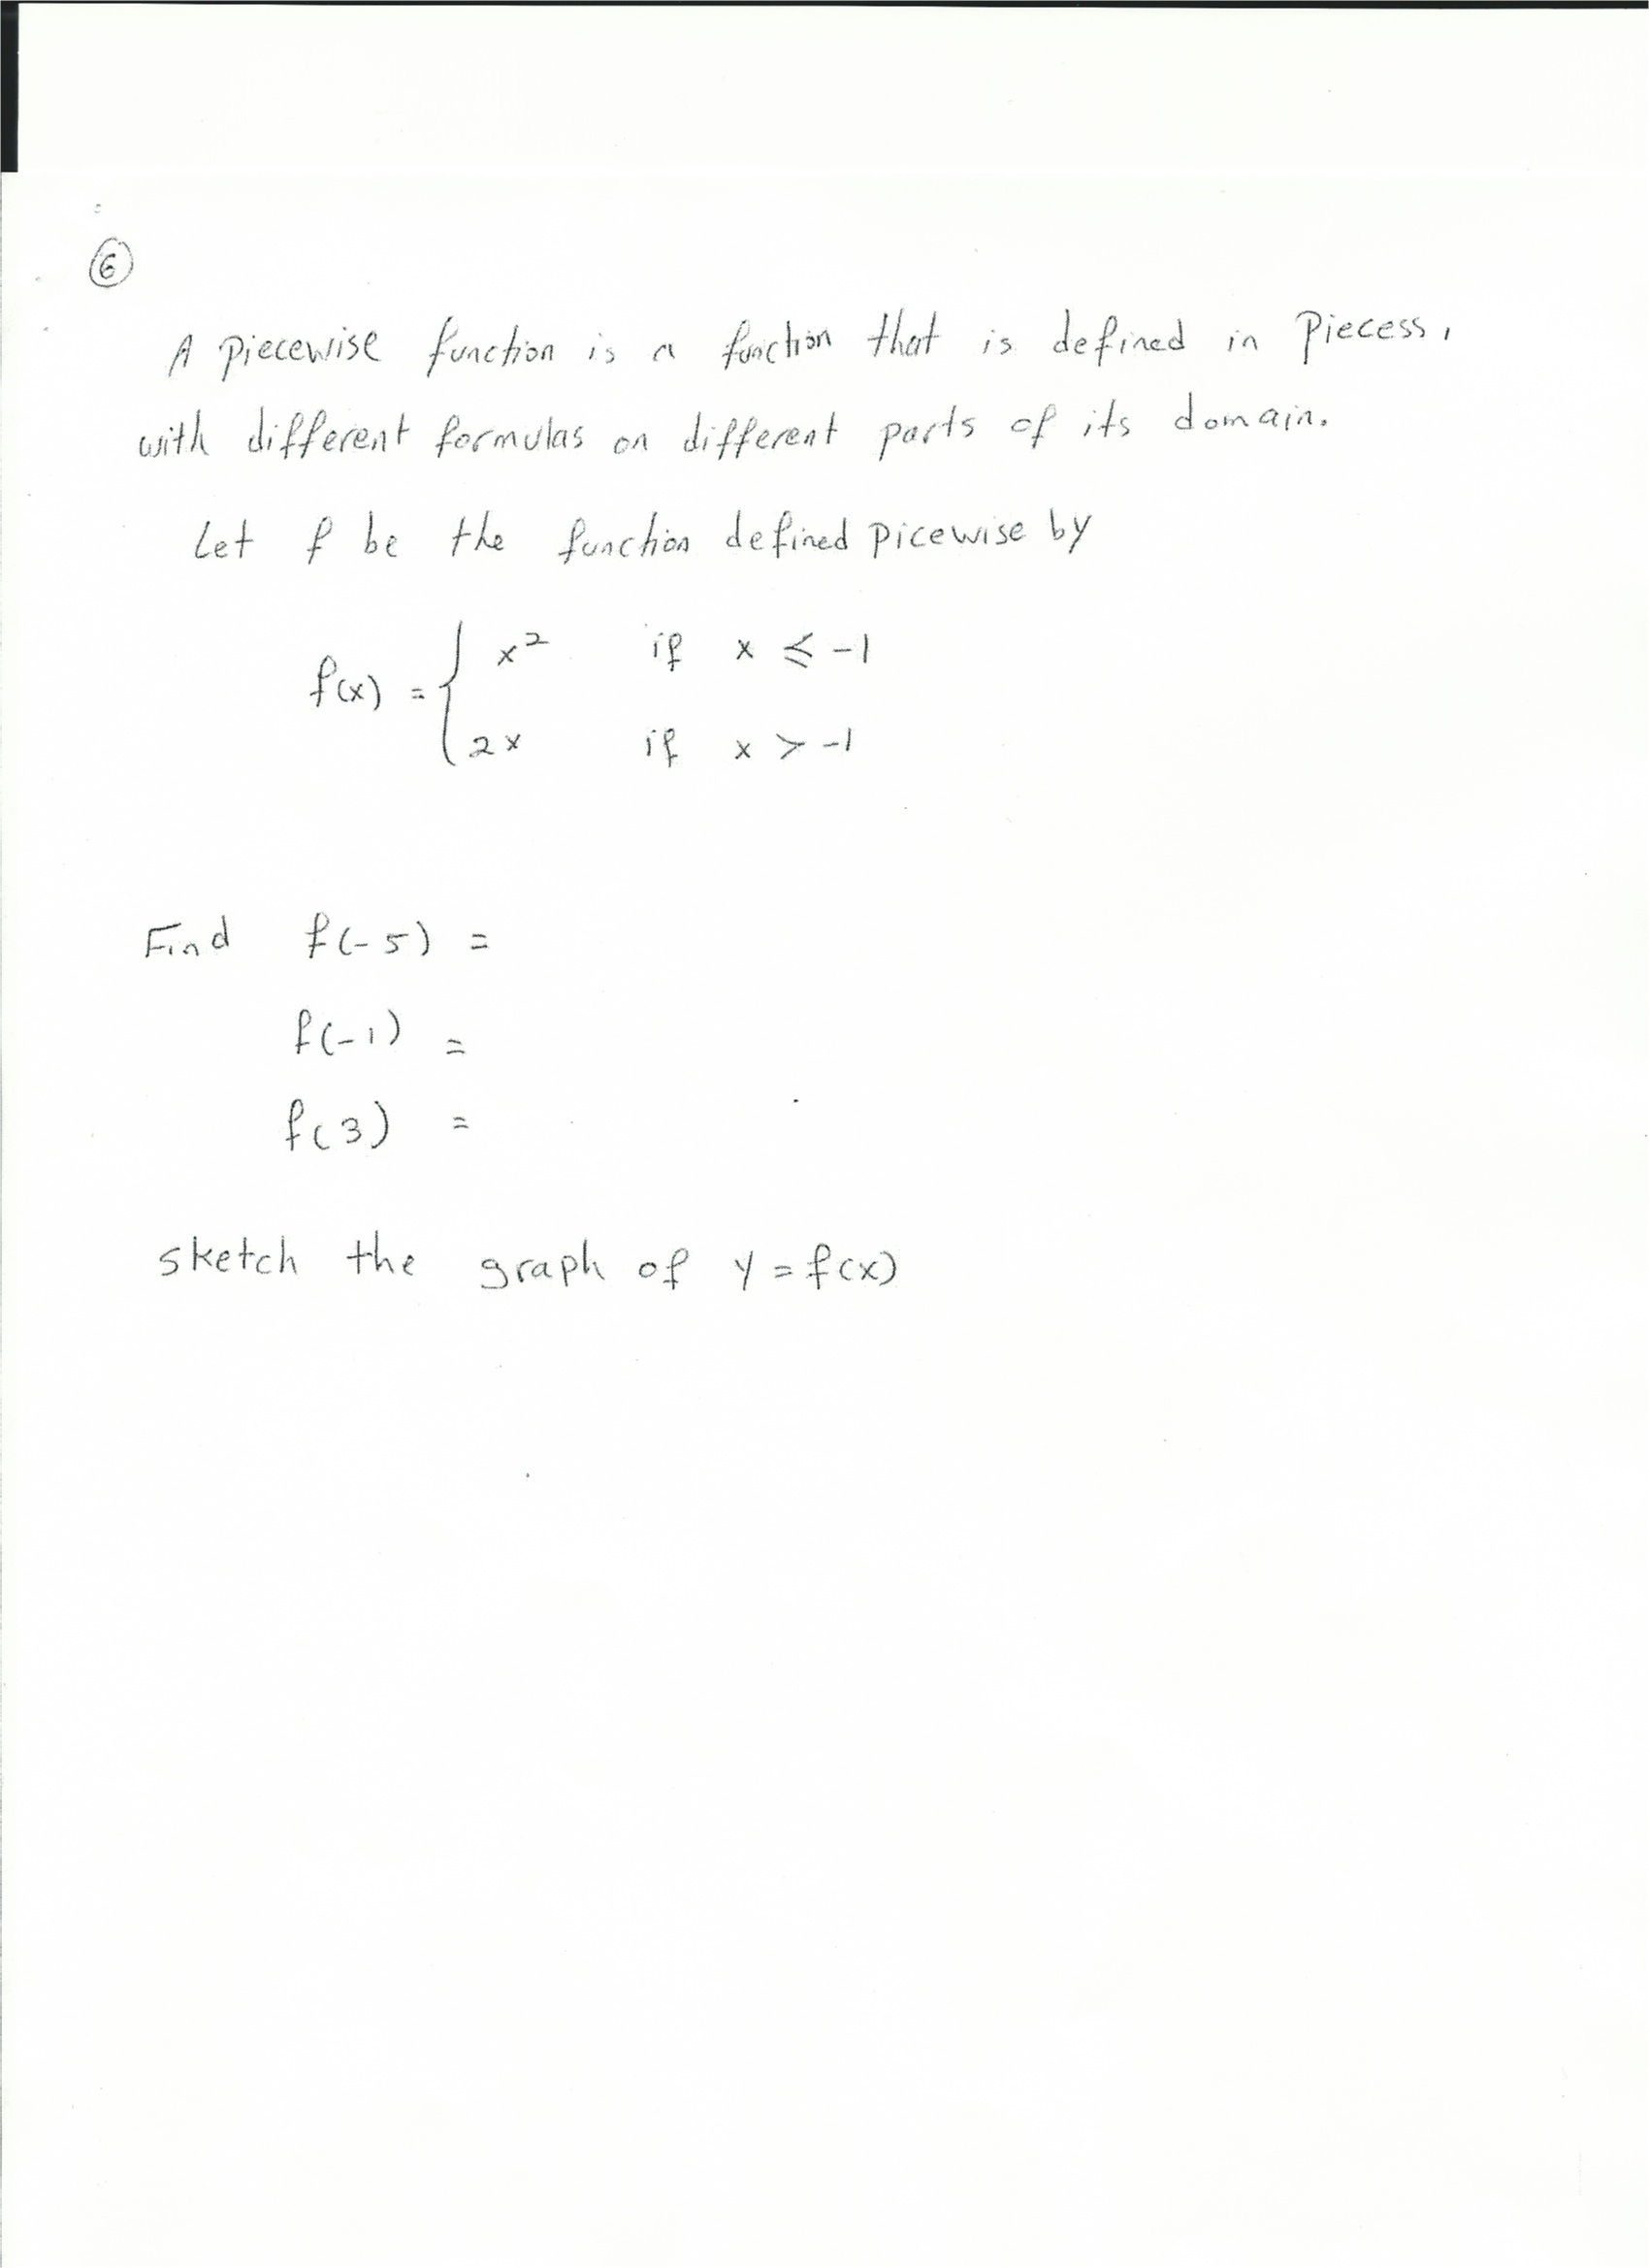 6
A piecewise function is a function that is defined in Piecess,
with different formulas on different parts of its domain.
Let f be the function defined picewise by
f(x) = { x² if x ≤ -1
2x if x > -1
Find f(-5) =
f(-1) =
f(3) =
sketch the graph of y = f(x)